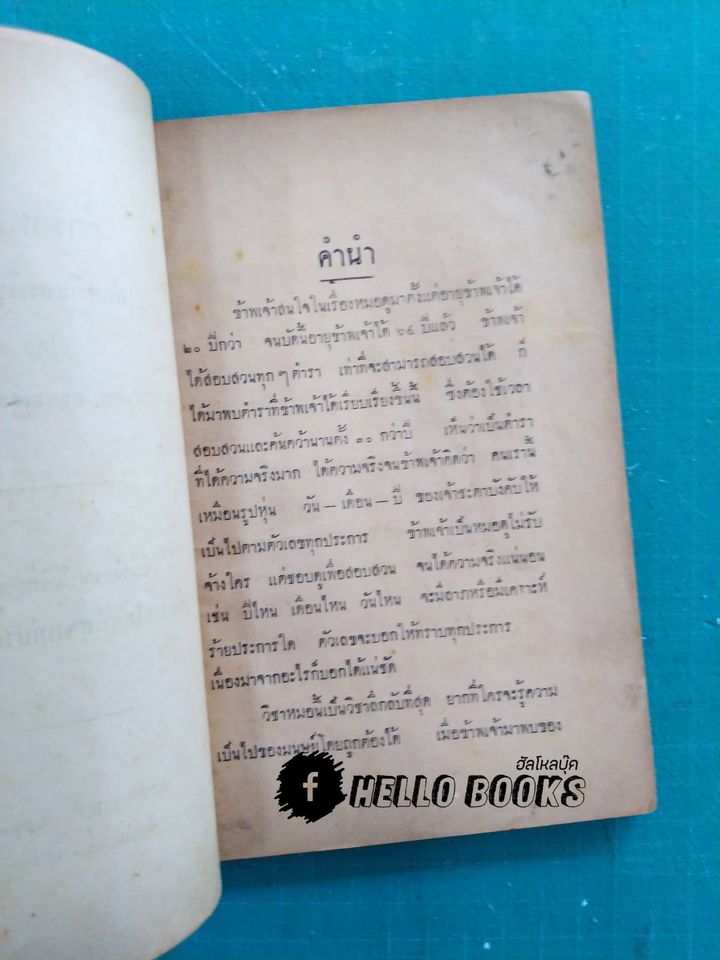 คำนำ
ข้าพเจ้าสนใจในเรื่องหมอดูมาตั้งแต่อายุข้าพเจ้าได้
๒๐ ปีกว่า จนบัดนี้อายุข้าพเจ้าได้ ๖๔ ปีแล้ว ข้าพเจ้า
ได้สอบสวนทุก ๆ ตำรา เท่าที่จะสามารถสอบสวนได้ ก็
ได้มาพบตำราที่ข้าพเจ้าได้เรียบเรียงขึ้นนี้ ซึ่งต้องใช้เวลา
สอบสวนและค้นคว้านานตั้ง ๓๐ กว่าปี เห็นว่าเป็นตำรา
ที่ได้ความจริงมาก ได้ความจริงจนข้าพเจ้าคิดว่า คนเรานี้
เหมือนรูปหุ่น วัน — เดือน — ปี ของเจ้าชะตาบังคับให้
เป็นไปตามตัวเลขทุกประการ ข้าพเจ้าเป็นหมอดูไม่รับ
จ้างใคร แต่ชอบดูเพื่อสอบสวน จนได้ความจริงแน่นอน
เช่น ปีไหน เดือนไหน วันไหน จะมีลาภหรือมีเคราะห์
ร้ายประการใด ตัวเลขจะบอกให้ทราบทุกประการ
เนื่องมาจากอะไรก็บอกได้แน่ชัด
วิชาหมอนี้เป็นวิชาลึกลับที่สุด ยากที่ใครจะรู้ความ
เป็นไปของมนุษย์โดยถูกต้องได้ เมื่อข้าพเจ้ามาพบของ
ฮัลโหลบุ๊ค
f HELLO BOOKS